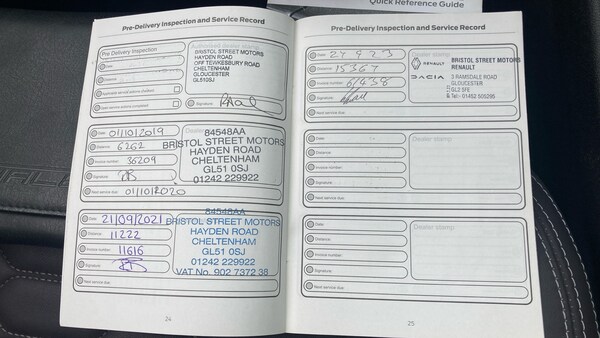 Quick Reference Guide
Pre-Delivery Inspection and Service Record
Pre Delivery Inspection
Date:
Distance:
Authorised stamp
BRISTOL STREET MOTORS
HAYDEN ROAD
OFF TEWKESBURY ROAD
CHELTENHAM
GLOUCESTER
GL510SJ
Signature:
Date: 01/10/2019
Distance: 6262
Invoice number: 36209
Signature:
Next service due: 01/10/2020
84548AA
BRISTOL STREET MOTORS
HAYDEN ROAD
CHELTENHAM
GL51 0SJ
01242 229922
Date: 21/09/2021
Distance: 11222
Invoice number: 11616
Signature:
Next service due:
84548AA
BRISTOL STREET MOTORS
HAYDEN ROAD
CHELTENHAM
GL51 0SJ
01242 229922
VAT No. 902 7372 38
24
Pre-Delivery Inspection and Service Record
Date: 27 9 23
Distance: 15367
Invoice number: 61438
Signature:
Next service due:
Dealer stamp:
RENAULT
DACIA
BRISTOL STREET MOTORS
RENAULT
3 RAMSDALE ROAD
GLOUCESTER
GL2 5FE
Tel: 01452 505295
Date:
Distance:
Invoice number:
Signature:
Next service due:
Dealer stamp:
Date:
Distance:
Invoice number:
Signature:
Next service due:
Dealer stamp:
25